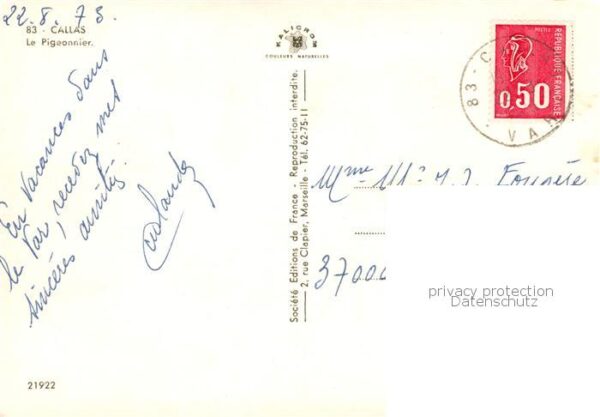 22.8.73.
83 - CALLAS
Le Pigeonnier.
KALICROM
COULEURS NATURELLES
POSTES
RÉPUBLIQUE FRANÇAISE
0,50
83 - C
VAR
En Vacances dans
le Var, recevez mes
sincères amitiés
Société Editions de France - Reproduction interdite.
2, rue Clapier, Marseille - Tél. 62-75-11
Mme
37000
privacy protection
Datenschutz
21922